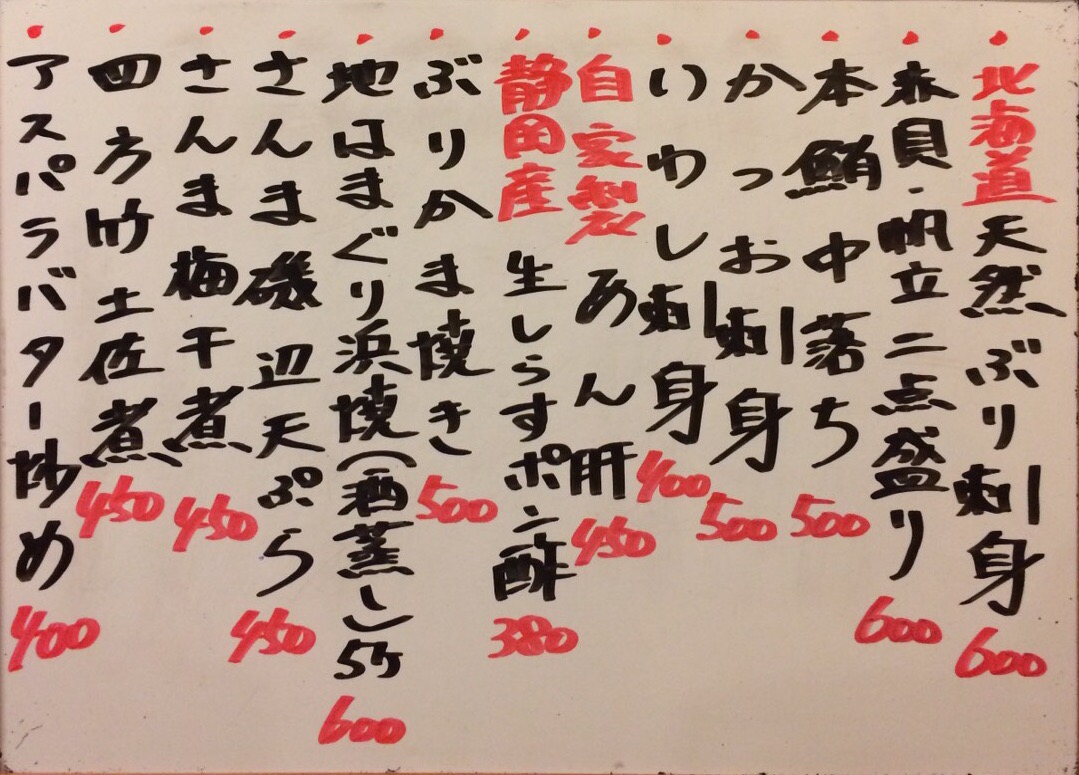 北海道天然ぶり刺身 600
赤貝・帆立二点盛り 600
本鮪中落ち 500
かつお刺身 500
いわし刺身 400
自家製あん肝 450
静岡産生しらすポン酢 380
ぶりかま焼き 500
地はまぐり浜焼(酒蒸し)5ケ 600
さんま磯辺天ぷら 450
さんま梅干煮 450
四方竹土佐煮 450
アスパラバター炒め 400